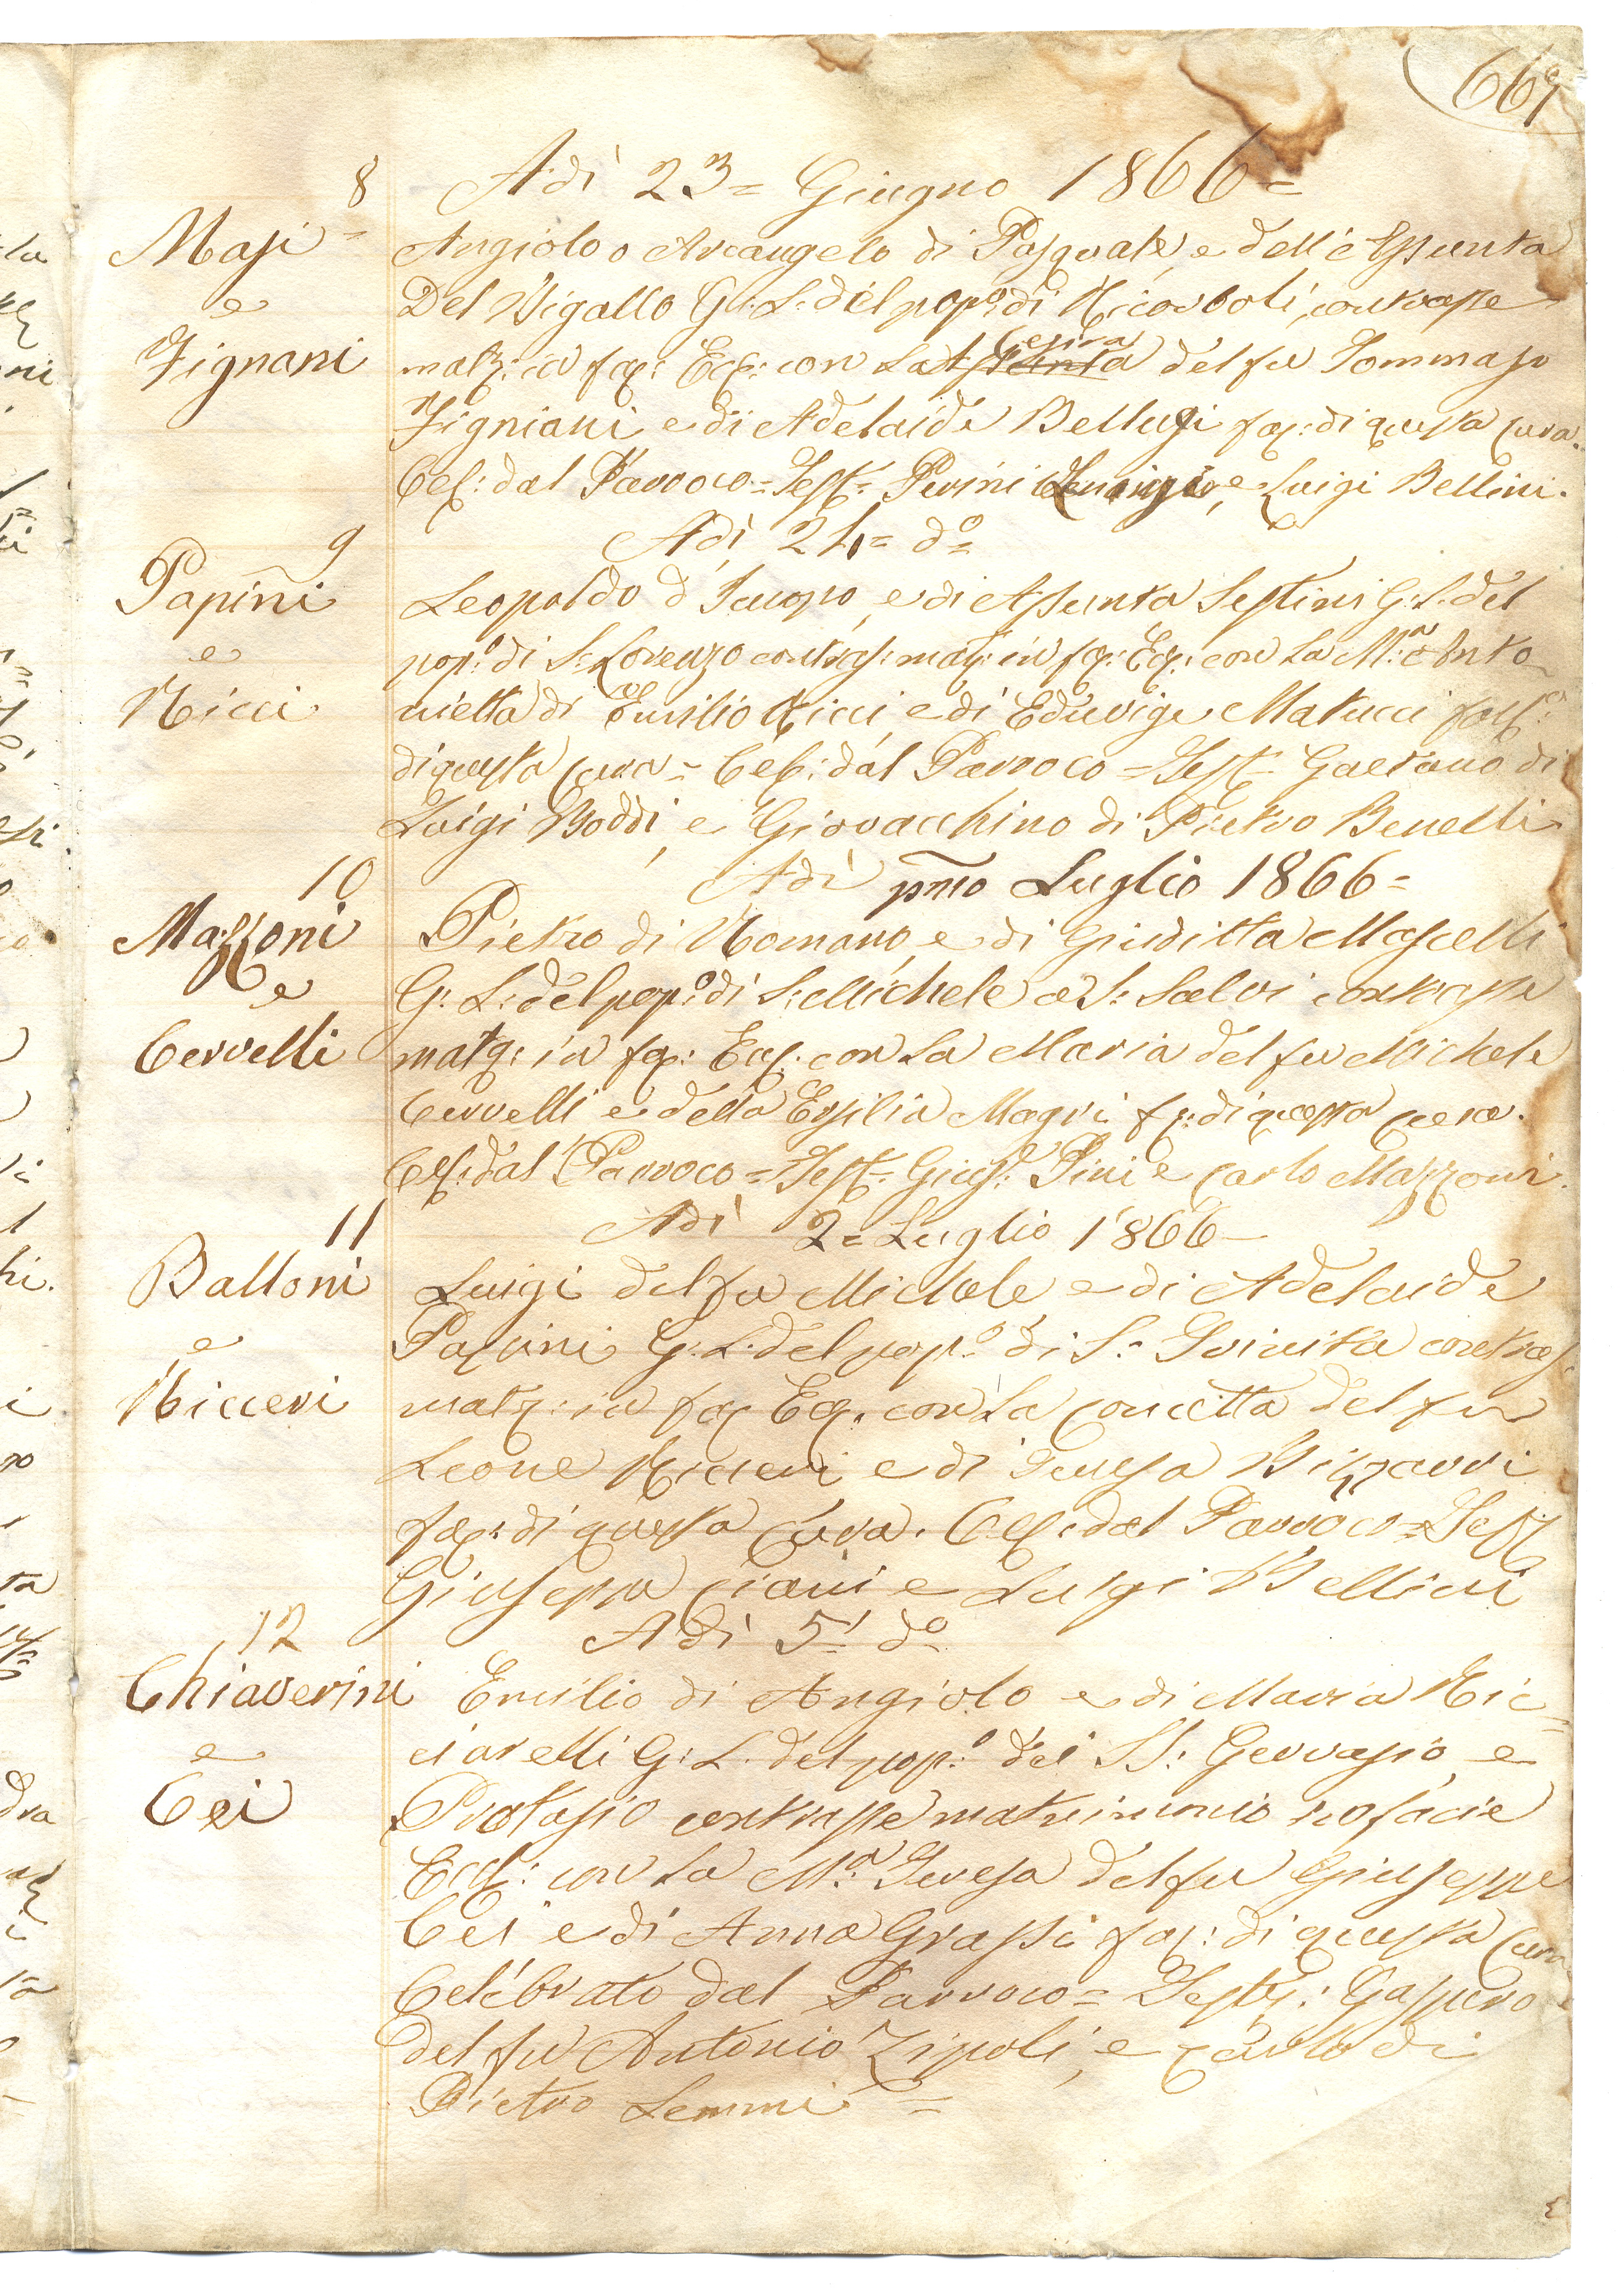 669
8
Adì 23= Giugno 1866=
Masi=
e
Fignani
Angiolo o Arcangelo di Pasquale, e dell'Assunta
Del Bigallo G: L: del pop:o di Ricorboli, contrasse
matr: in fac: Ecc: con la Assunta Cesira del fu Tommaso
Figniani e di Adelaide Bellugi fac: di questa Cura.
Cel: dal Parroco= Test= Perini e Luigi Bellini.
Adì 24= do=
9
Papini
e
Ricci
Leopoldo d'Jacopo, e di Assunta Sestini G: L: del
pop:o di S: Lorenzo contras: mat: in fac: Ecc: con la M:a Anto
nietta di Emilio Ricci, e di Eduvige Matucci
di questa Cura= Cel: dal Parroco= Test= Gaetano di
Luigi Boddi, e Giovacchino di Pietro Benelli
Adì pmo Luglio 1866=
10
Mazzoni
e
Cervelli
Pietro di Romano, e di Giuditta Mascelli
G: L: del pop:o di S: Michele a S: Salvi contrasse
matr: in fac: Ecc: con la Maria del fu Michele
Cervelli e della Ersilia Magri fac: di questa Cura.
Cel: dal Parroco= Test= Gius: Pini e Carlo Mazzoni.
Adì 2= Luglio 1866=
11
Balloni
e
Ricceri
Luigi del fu Michele e di Adelaide
Papini G: L: del pop:o di S: Trinita contras:
matr: in fac: Ecc: con la Concetta del fu
Leone Ricceri e di Teresa Bizzarri
fac: di questa Cura. Cel: dal Parroco= Test
Giuseppe Ciani e Luigi Bellini
Adì 5= do
12
Chiaverini
e
Cei
Emilio di Angiolo e di Maria Ric=
ciarelli G: L: del pop:o dei SS: Gervasio, e
Protasio contrasse matrimonio in facie
Eccl: con la M:a Teresa del fu Giuseppe
Cei e di Anna Grassi fac: di questa Cura
Celebrato dal Parroco= Test: Gaspero
del fu Antonio Zipoli, e Carlo di
Pietro Lemmi=